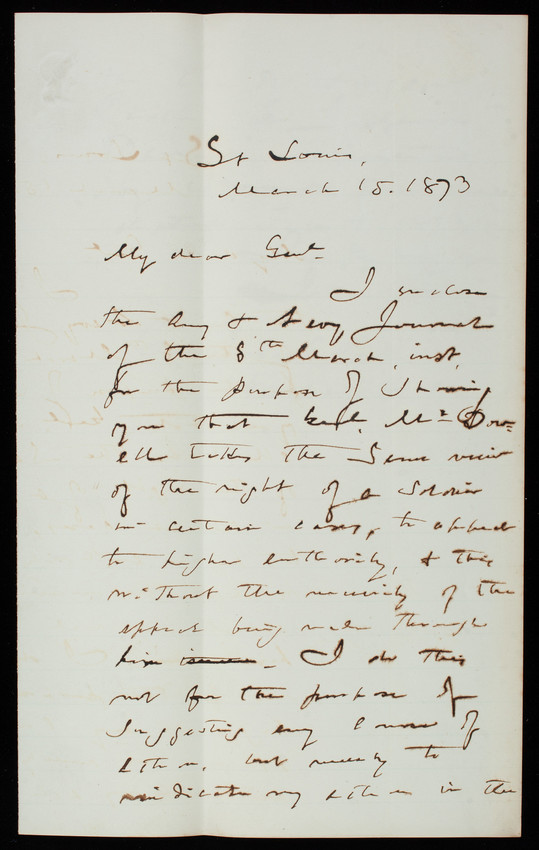 St Louis,
March 15. 1873
My dear Genl.
I enclose
the Army & Navy Journal
of the 8th March, inst,
for the purpose of showing
you that Genl. Mc Dow=
ell takes the same view
of the right of a Soldier
in certain cases, to appeal
to higher authority, & this
without the necessity of the
appeal being made through
him - I do this
not for the purpose of
suggesting any course of
action, but merely to
vindicate my action in the